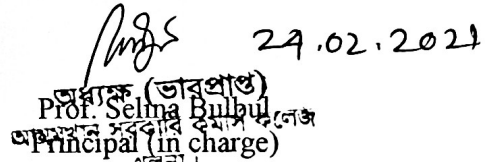 24.02.2021
অধ্যক্ষ (ভারপ্রাপ্ত)
Prof. Selina Bulbul
সরকারি কমার্স কলেজ
Principal (in charge)
খুলনা।